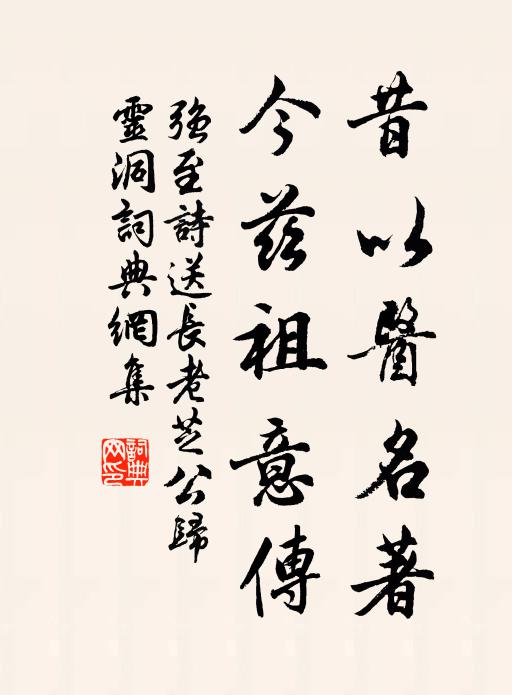 昔以醫名著
今茲祖意傳
強至詩送長老芝公歸
靈洞詞典網集
詞典網印